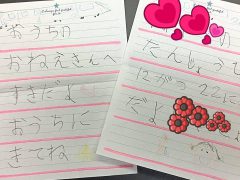 おうちの
おねえさんへ
すきだよ
おうちに
きてね
たんじょう
12がつ22に
だよ